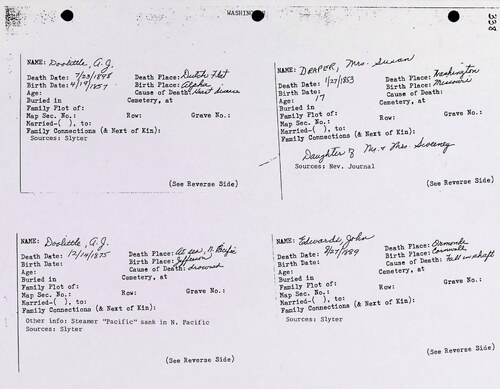 WASHINGTON
338
NAME: Doolittle, A.J.
Death Date: 7/23/1898 Death Place: Dutch Flat
Birth Date: 4/19/1857 Birth Place: Alpha
Age: Cause of Death: Heart Disease
Buried in Cemetery, at
Family Plot of:
Map Sec. No.: Row: Grave No.:
Married-( ), to:
Family Connections (& Next of Kin):
Sources: Slyter
(See Reverse Side)
NAME: DRAPER, Mrs. Susan
Death Date: 1/27/1853 Death Place: Washington
Birth Date: Birth Place: Missouri
Age: 17 Cause of Death:
Buried in Cemetery, at
Family Plot of:
Map Sec. No.: Row: Grave No.:
Married-( ), to:
Family Connections (& Next of Kin):
Sources: Nev. Journal
Daughter of Mr. & Mrs. Sweeney
(See Reverse Side)
NAME: Doolittle, A.J.
Death Date: 12/14/1875 Death Place: At sea, N. Pacific
Birth Date: Birth Place: Jefferson
Age: Cause of Death: drowned
Buried in Cemetery, at
Family Plot of:
Map Sec. No.: Row: Grave No.:
Married-( ), to:
Family Connections (& Next of Kin):
Other info: Steamer "Pacific" sank in N. Pacific
Sources: Slyter
(See Reverse Side)
NAME: Edwards, John
Death Date: 9/27/1889 Death Place: Ormonde
Birth Date: Birth Place: Cornwall
Age: Cause of Death: Fell in shaft
Buried in Cemetery, at
Family Plot of:
Map Sec. No.: Row: Grave No.:
Married-( ), to:
Family Connections (& Next of Kin)
Sources: Slyter
(See Reverse Side)